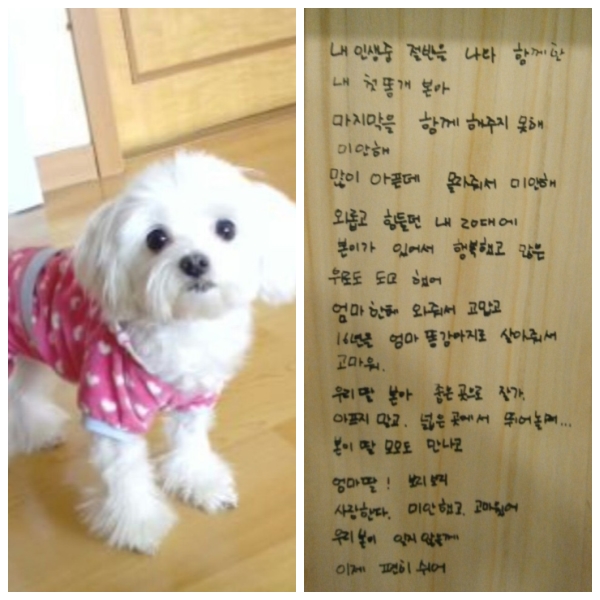 내 인생중 절반을 나와 함께한
내 첫똥개 본아
마지막을 함께 해주지 못해
미안해
많이 아픈데 몰라줘서 미안해
외롭고 힘들던 내 20대에
본이가 있어서 행복했고 많은
위로도 되고 했어
엄마한테 와줘서 고맙고
16년을 엄마 똥강아지로 살아줘서
고마워.
우리딸 본아 좋은곳으로 잘가.
아프지 말고. 넓은 곳에서 뛰어놀며...
본이 딸 모모도 만나고
엄마딸! 뽀찌뽀찌
사랑한다. 미안했고. 고마웠어
우리본이 잊지 않을께
이제 편히 쉬어